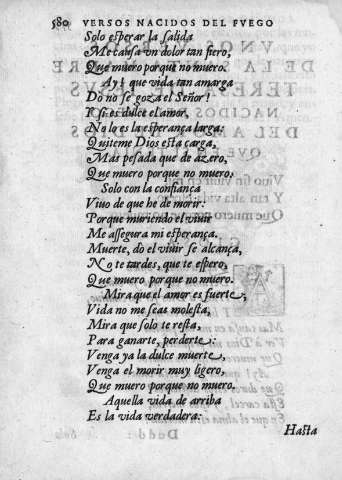 580 VERSOS NACIDOS DEL FVEGO
Solo esperar la salida
Me causa vn dolor tan fiero,
Que muero porque no muero.
Ay! que vida tan amarga
Do no se goza el Señor!
Y si es dulce el amor,
No lo es la esperança larga:
Quiteme Dios esta carga,
Mas pesada que de azero,
Que muero porque no muero.
Solo con la confiança
Viuo de que he de morir:
Porque muriendo el viuir
Me assegura mi esperança.
Muerte, do el viuir se alcança,
No te tardes, que te espero,
Que muero porque no muero.
Mira que el amor es fuerte,
Vida no me seas molesta,
Mira que solo te resta,
Para ganarte, perderte:
Venga ya la dulce muerte,
Venga el morir muy ligero,
Que muero porque no muero.
Aquella vida de arriba
Es la vida verdadera:
Hasta